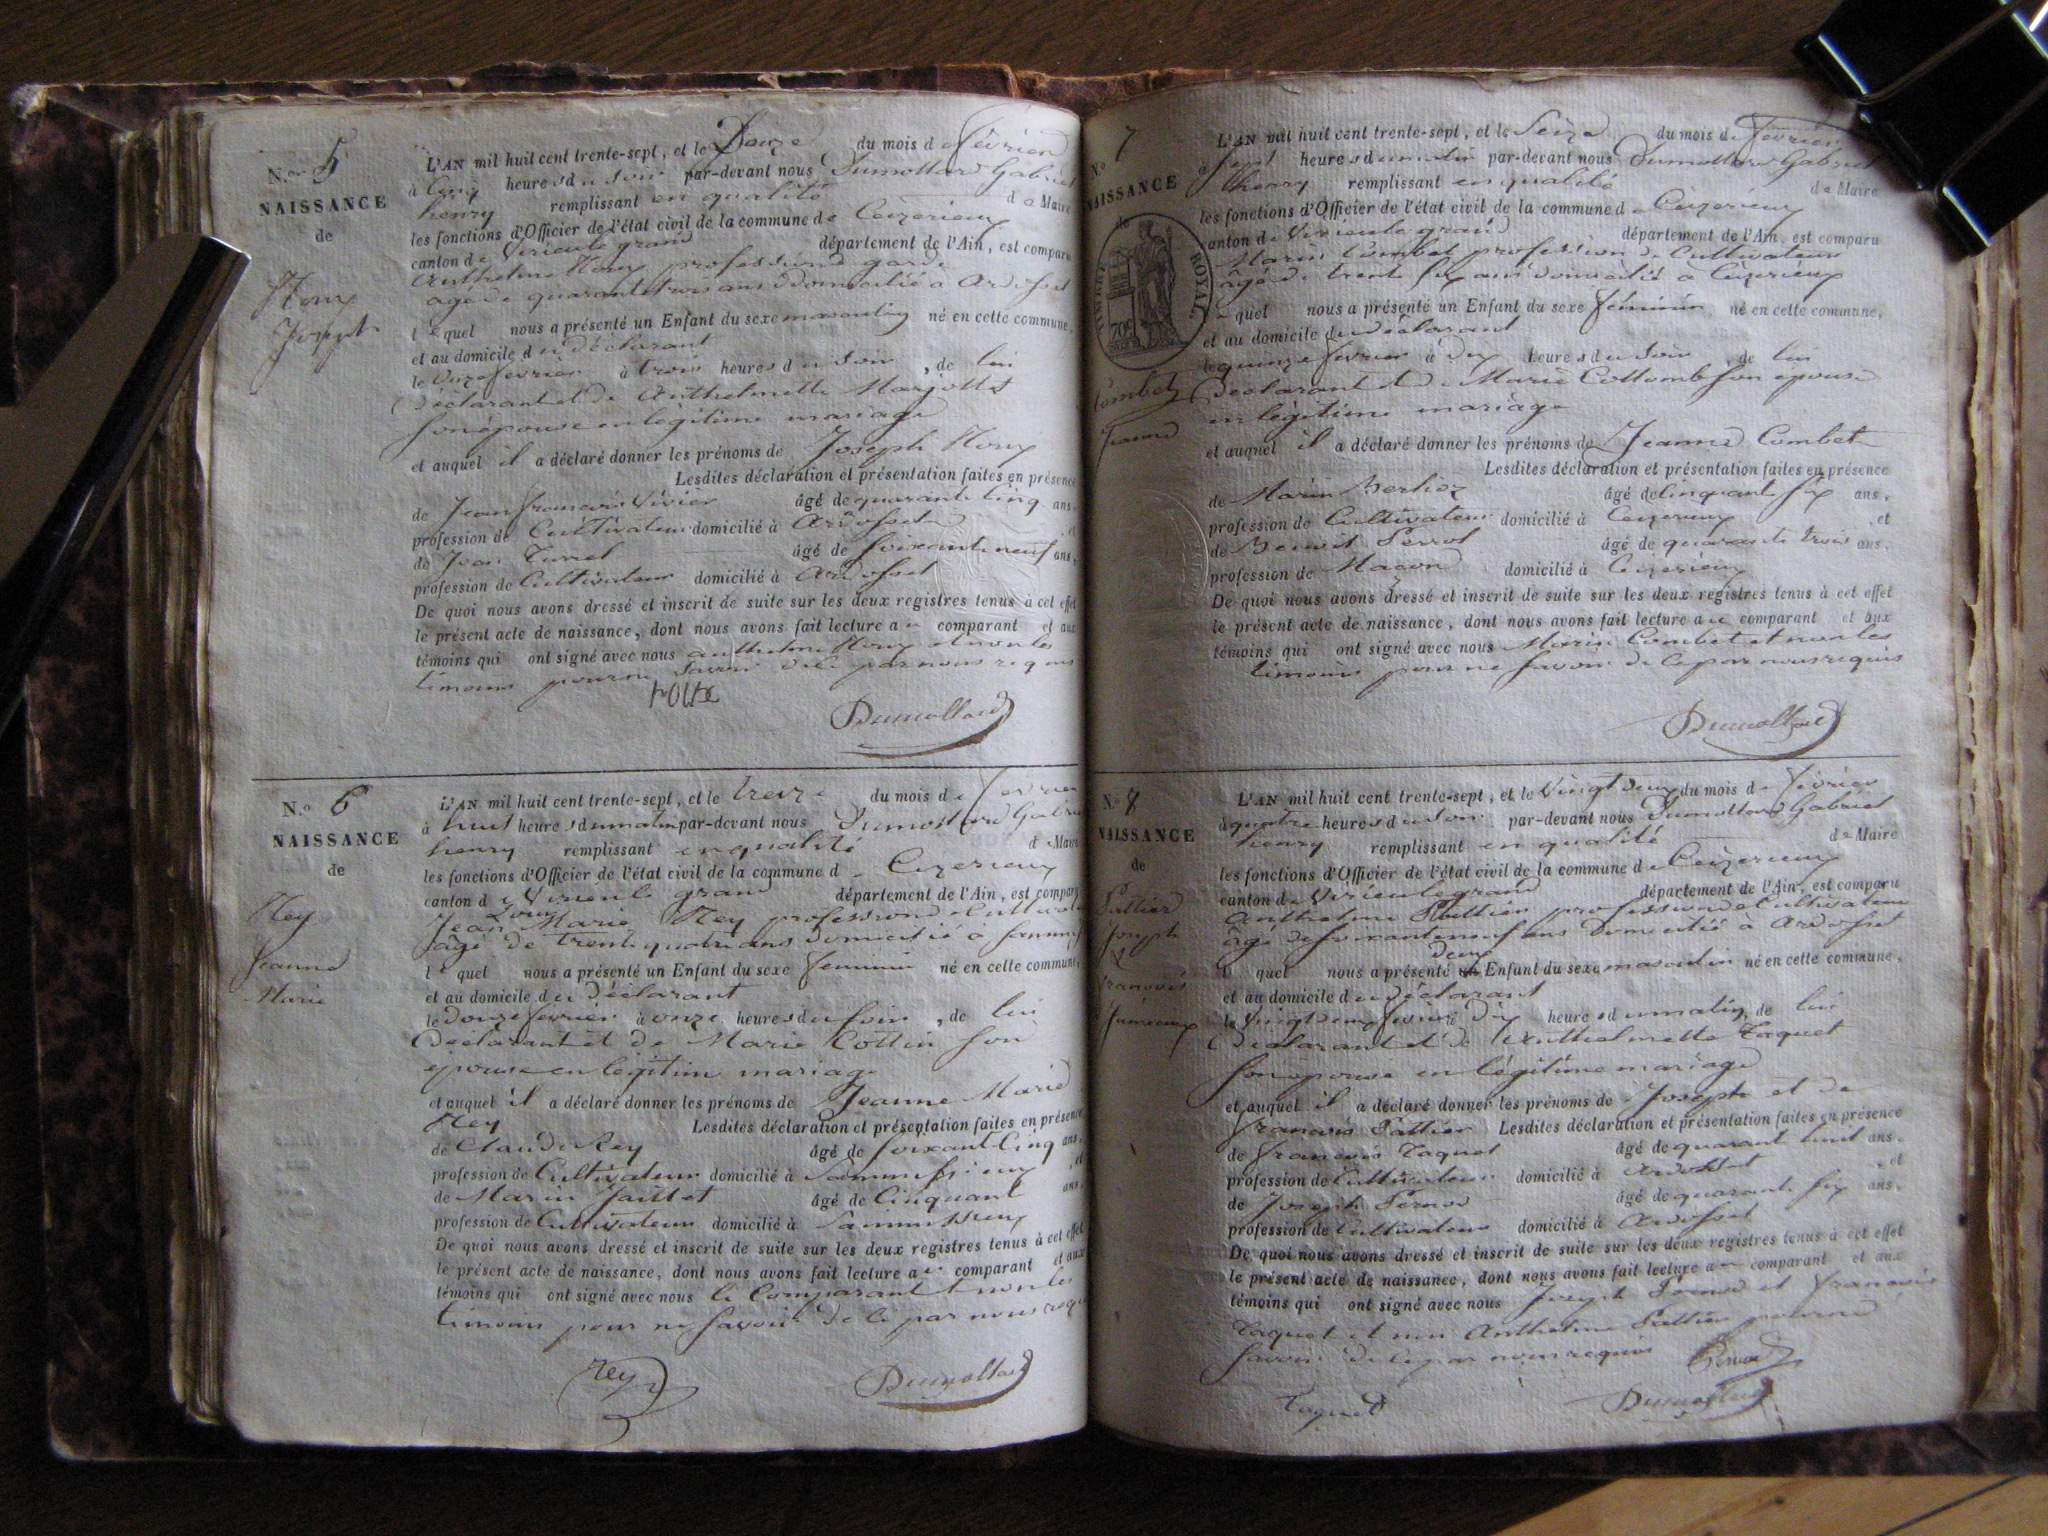 N.o 5
NAISSANCE
de
Houx
Joseph
L'AN mil huit cent trente-sept, et le Douze du mois de février
à cinq heures du soir par-devant nous Dumollard Gabriel
henry remplissant en qualité de Maire
les fonctions d'Officier de l'état civil de la commune de Ceyzerieux
canton de Virieu le grand département de l'Ain, est comparu
Anthelme Houx profession de garde
âgé de quarante trois ans Domicilié à Ardosset
lequel nous a présenté un Enfant du sexe masculin né en cette commune,
et au domicile du déclarant
le onze fevrier à trois heures du soir, de lui
Déclarant et de Anthelmette Marjollet
son épouse en légitime mariage
et auquel il a déclaré donner les prénoms de Joseph Houx
Lesdites déclaration et présentation faites en présence
de Jean françois Vivier âgé de quarante cinq ans,
profession de Cultivateur domicilié à Ardosset et
de Jean Turrel âgé de soixante neuf ans,
profession de Cultivateur domicilié à Ardosset
De quoi nous avons dressé et inscrit de suite sur les deux registres tenus à cet effet
le présent acte de naissance, dont nous avons fait lecture au comparant et aux
témoins qui ont signé avec nous anthelme Houx et non les
timoins pour ne savoir de ce par nous requis
houx
Dumollard
N.o 6
NAISSANCE
de
Rey
Jeanne
Marie
L'AN mil huit cent trente-sept, et le treize du mois de fevrier
à huit heures du matin par-devant nous Dumollard Gabriel
henry remplissant en qualité de Maire
les fonctions d'Officier de l'état civil de la commune de Ceyzerieux
canton de Virieu le grand département de l'Ain, est comparu
Jean Louis Marie Rey profession de Cultivateur
âgé de trente quatre ans domicilié à
lequel nous a présenté un Enfant du sexe feminin né en cette commune,
et au domicile du déclarant
le douze fevrier à onze heures du soir, de lui
Déclarant et de Marie Cottin son
épouse en légitime mariage
et auquel il a déclaré donner les prénoms de Jeanne Marie
Rey Lesdites déclaration et présentation faites en présence
de Claude Rey âgé de soixante Cinq ans,
profession de Cultivateur domicilié à et
de Marin Jaillet âgé de Cinquante ans,
profession de Cultivateur domicilié à
De quoi nous avons dressé et inscrit de suite sur les deux registres tenus à cet effet
le présent acte de naissance, dont nous avons fait lecture au comparant et aux
témoins qui ont signé avec nous le comparant non les
timoins pour ne savoir de ce par nous requis
rey
Dumollard
N.o 7
NAISSANCE
de
TIMBRE ROYAL
70c
Combet
Jeanne
L'AN mil huit cent trente-sept, et le Seize du mois de février
à sept heures du matin par-devant nous Dumollard Gabriel
henry remplissant en qualité de Maire
les fonctions d'Officier de l'état civil de la commune de Ceyzerieux
canton de Virieu le grand département de l'Ain, est comparu
Marin Combet profession de Cultivateur
âgé de trente six ans domicilié à Ceyzerieux
lequel nous a présenté un Enfant du sexe féminin né en cette commune,
et au domicile du déclarant
le quinze fevrier à dix heures du soir, de lui
Déclarant et de Marie Collomb son épouse
en légitime mariage
et auquel il a déclaré donner les prénoms de Jeanne Combet
Lesdites déclaration et présentation faites en présence
de Marin Berlioz âgé de cinquante six ans,
profession de Cultivateur domicilié à Ceyzerieux et
de Benoit Perrot âgé de quarante trois ans,
profession de Maçon domicilié à Ceyzerieux
De quoi nous avons dressé et inscrit de suite sur les deux registres tenus à cet effet
le présent acte de naissance, dont nous avons fait lecture au comparant et aux
témoins qui ont signé avec nous Marin Combet et non les
timoins pour ne savoir de ce par nous requis
Dumollard
N.o 8
NAISSANCE
de
Pattier
Joseph
&
francois
Jumeaux
L'AN mil huit cent trente-sept, et le vingt deux du mois de février
à quatre heures du soir par-devant nous Dumollard Gabriel
henry remplissant en qualité de Maire
les fonctions d'Officier de l'état civil de la commune de Ceyzerieux
canton de Virieu le grand département de l'Ain, est comparu
Anthelme Pattier profession de Cultivateur
âgé de soixante neuf ans Domicilié à Ardosset
deux
lequel nous a présenté un Enfant du sexe masculin né en cette commune,
et au domicile du déclarant
le vingt deux fevrier à dix heures du matin, de lui
Déclarant et de Anthelmette Taquet
son epouse en légitime mariage
et auquel il a déclaré donner les prénoms de Joseph et de
francois Pattier Lesdites déclaration et présentation faites en présence
de francois Taquet âgé de quarante huit ans,
profession de Cultivateur domicilié à Ardosset et
de Joseph Pernod âgé de quarante six ans,
profession de Cultivateur domicilié à Ardosset
De quoi nous avons dressé et inscrit de suite sur les deux registres tenus à cet effet
le présent acte de naissance, dont nous avons fait lecture au comparant et aux
témoins qui ont signé avec nous Joseph Pernod et francois
Taquet et non Anthelme Pattier pour ne
savoir de ce par nous requis
Taquet
Dumollard